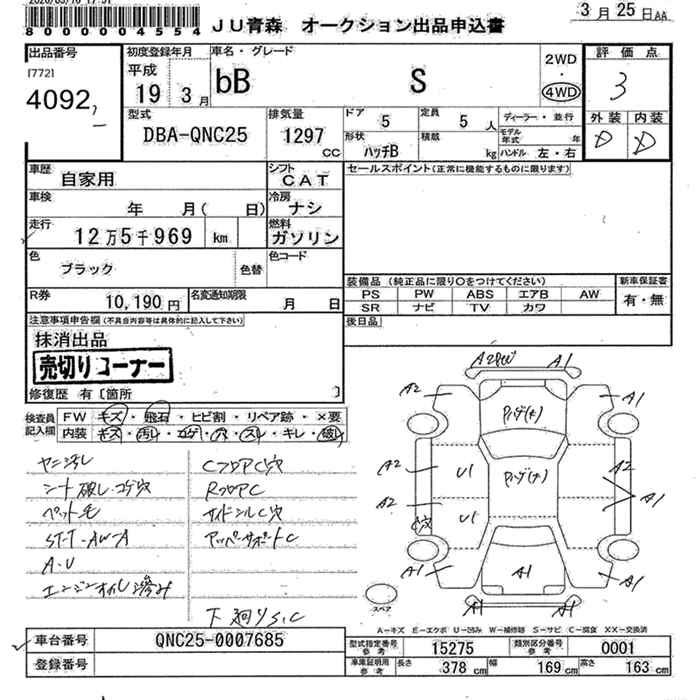 8000004554
JU青森 オークション出品申込書
3月25日AA
出品番号
[772]
4092
初度登録年月
平成
19 3月
車名・グレード
bB S
2WD
・
4WD
評価点
3
外装 内装
D D
型式
DBA-QNC25
排気量
1297 CC
ドア 5
定員 5 人
形状 ハッチB
積載 kg
ディーラー・並行
モデル年式 年
ハンドル 左・右
車歴
自家用
シフト
CAT
車検
年 月( 日)
冷房
ナシ
走行
12万5千969 km
燃料
ガソリン
色
ブラック
色替
色コード
R券
10,190 円
名変通知期限
月 日
セールスポイント(正常に機能するものに限ります)
装備品(純正品に限り○をつけてください)
PS PW ABS エアB AW
SR ナビ TV カワ
新車保証書
有・無
後日品
注意事項申告欄(不具合内容等は具体的に記入して下さい)
抹消出品
売切りコーナー
修復歴 有〔箇所 〕
検査員記入欄
FW キズ・飛石・ヒビ割・リペア跡・×要
内装 キズ・汚レ・コゲ・穴・スレ・キレ・破レ
ヤニ汚レ
シート破レ・コゲ穴
ペット毛
ST-T-AW-A
A・U
エンジンオイル滲み
CフロアC穴
RフロアC
サイドシルC穴
アッパーサポートC
下廻りS,C
A2 A1
A2 A1
ハゲ(キ)
A2 U1 A2
A2 U1 A1
C穴
A1 A1 A1
A1 A1
スペア
A-キズ E-エクボ U-凹み W-補修跡 S-サビ C-腐食 XX-交換済
車台番号
QNC25-0007685
登録番号
型式指定番号 参考 15275
類別区分番号 参考 0001
車庫証明用 参考 長さ 378 cm 幅 169 cm 高さ 163 cm